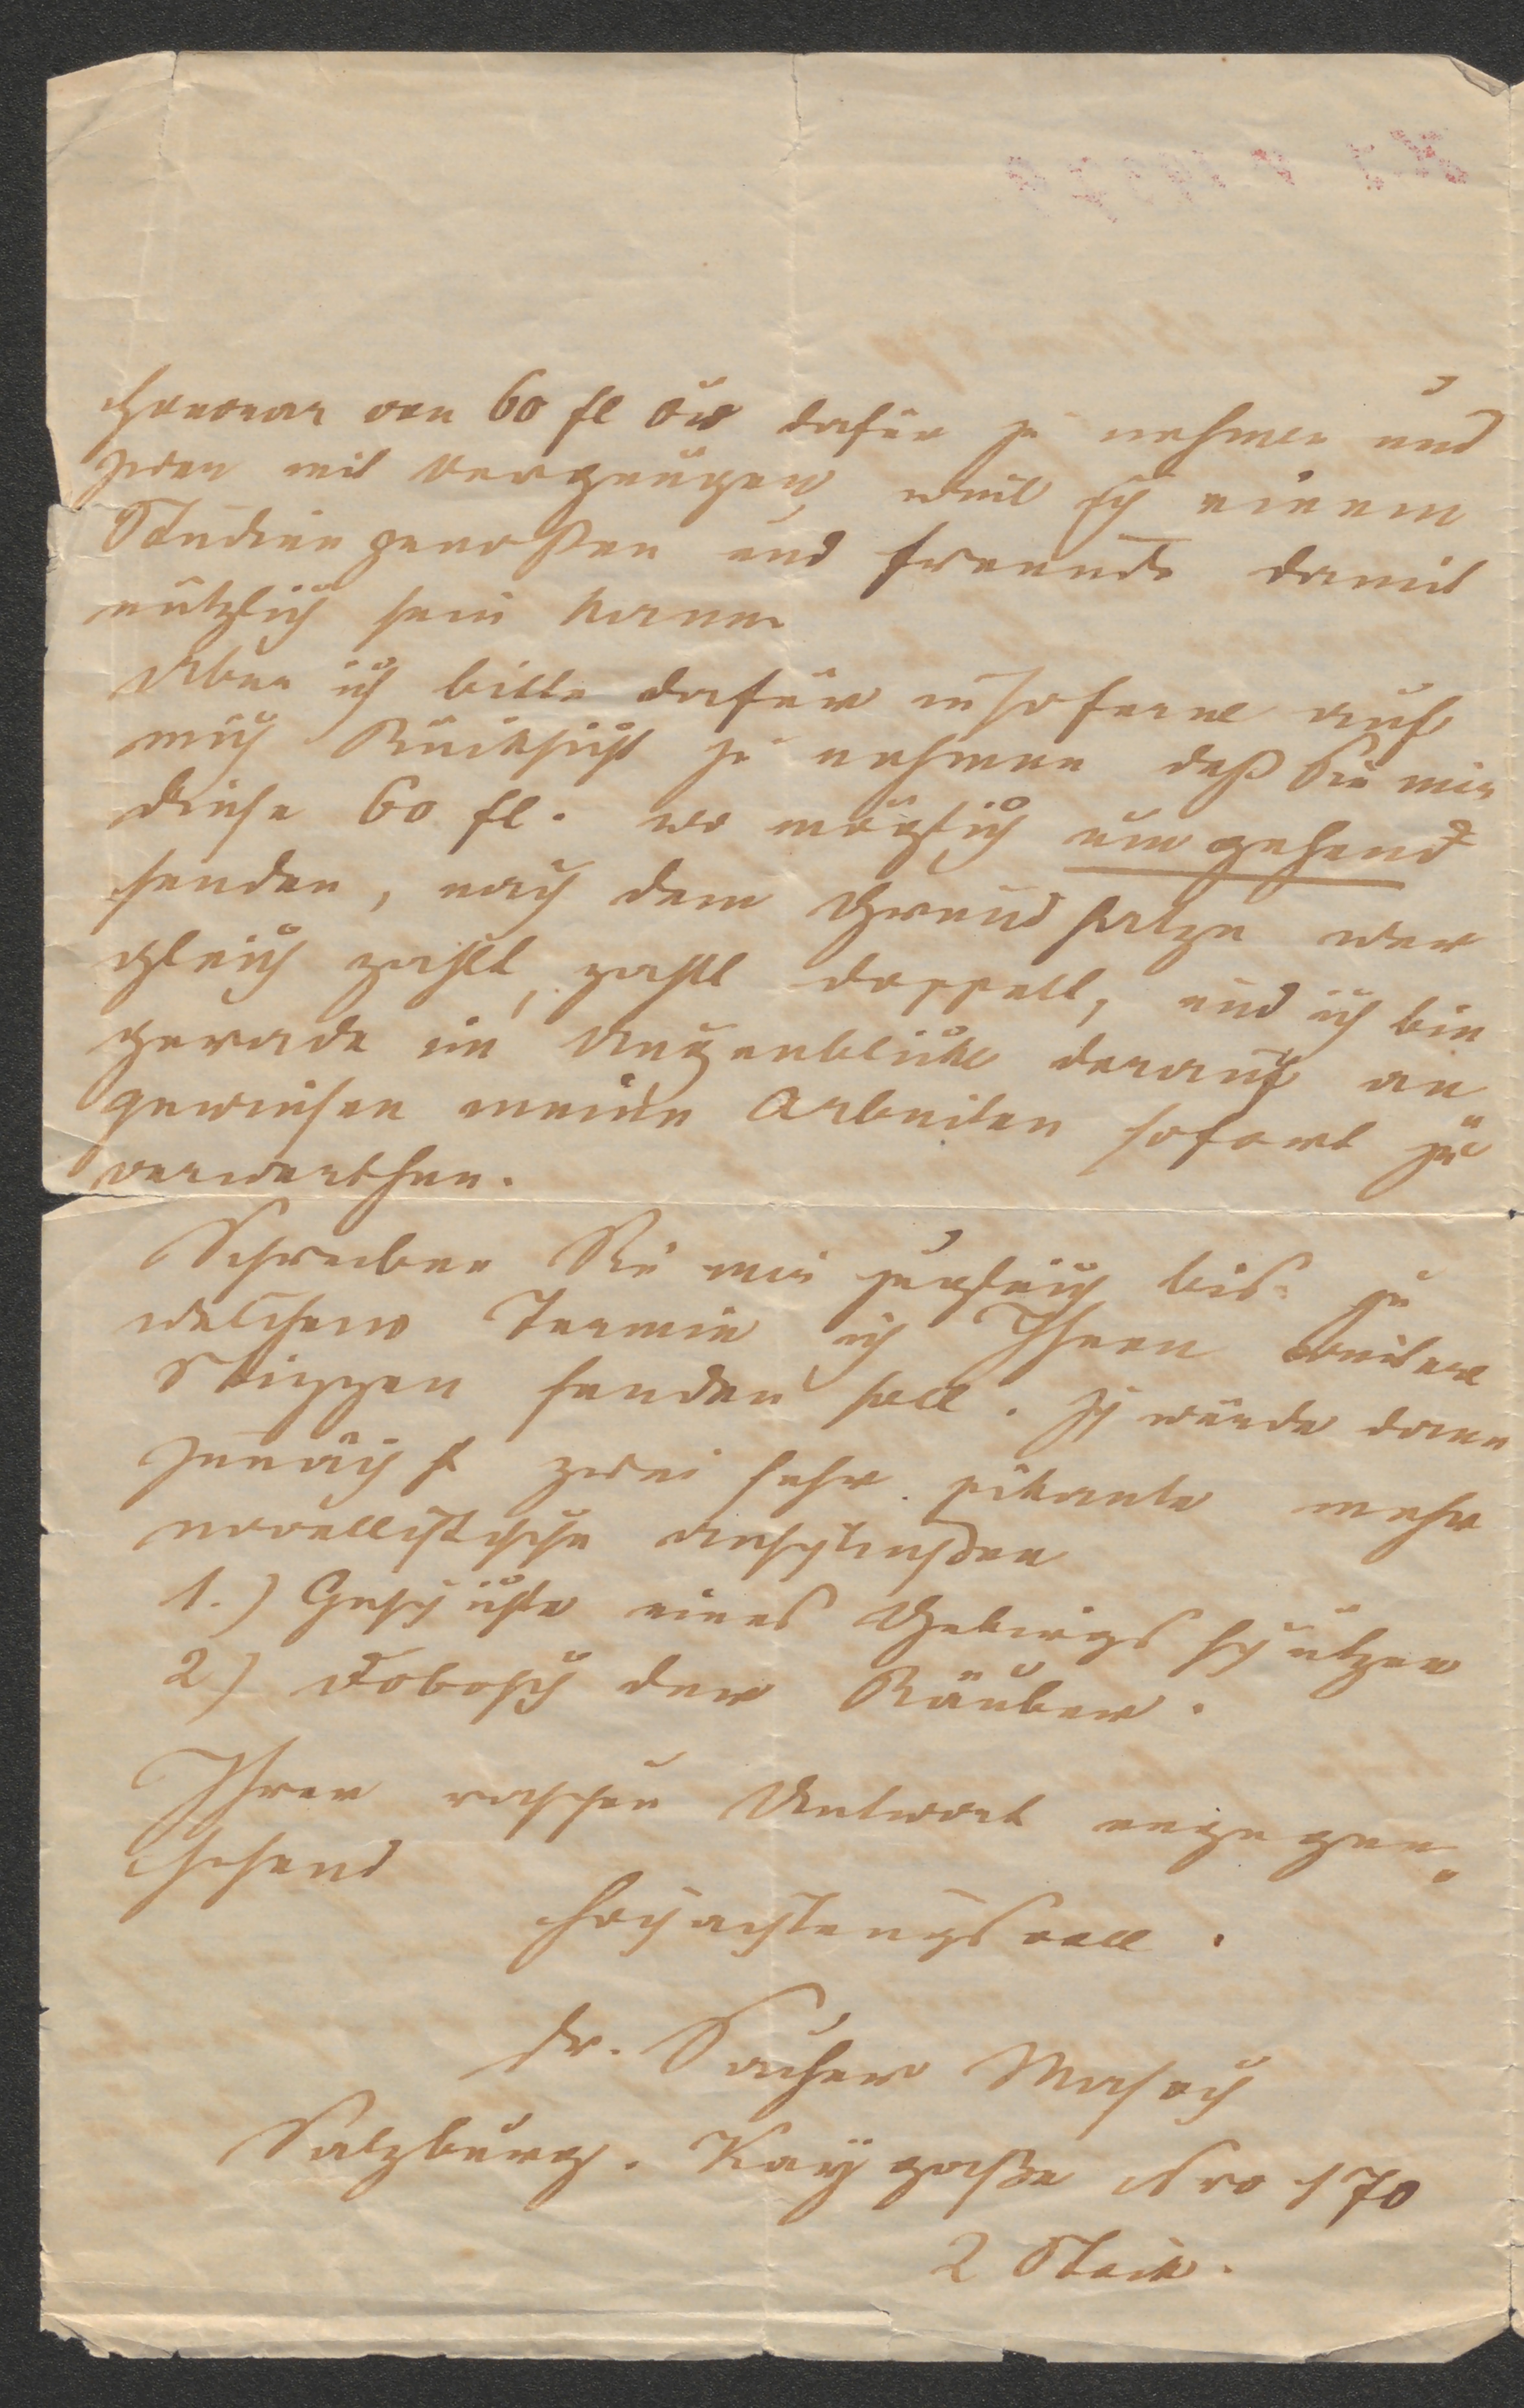 Honorar von 60 fl öw dafür zu nehmen und
zwar mit Vergnügen, weil ich einem
Studiengenoßen und Freunde damit
nützlich sein kann.
Aber ich bitte dafür insoferne auf
mich Rücksicht zu nehmen daß Sie mir
diese 60 fl. wo möglich umgehend
senden, nach dem Grundsatze wer
gleich zahlt, zahlt doppelt, und ich bin
gerade im Augenblicke darauf an„
gewiesen meine Arbeiten sofort zu
verwerthen.
Schreiben Sie mir zugleich bis zu
welchem Termin ich Ihnen weitere
Skizzen senden soll. Ich würde dann
zunächst zwei sehr pikante mehr
novellistische anschließen
1.) Geschichte eines Gebirgsschützen
2) Dobosch der Räuber.
Ihrer raschen Antwort entgegen„
sehend
hochachtungsvoll.
Dr. Sacher Masoch
Salzburg. Kaygaße Nro 170
2 Stock.